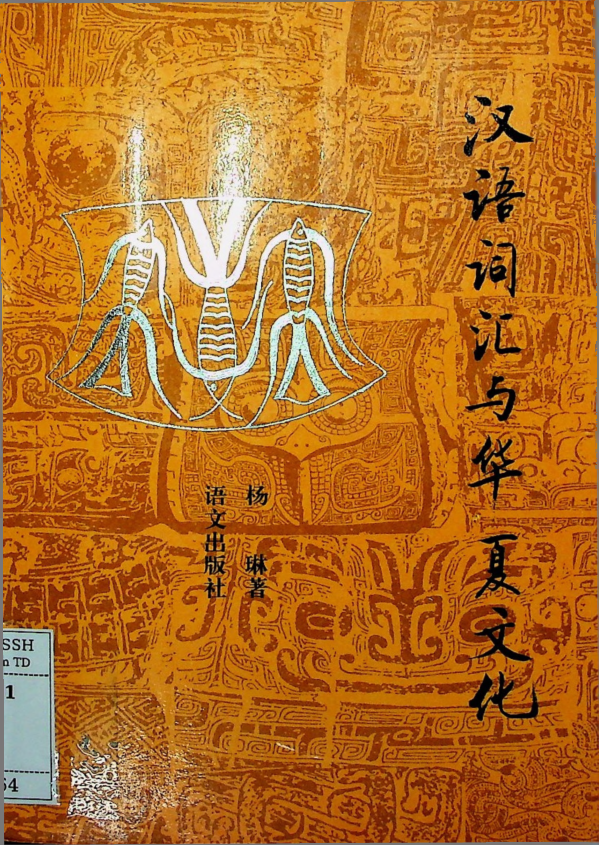 汉语词汇与华夏文化
杨琳著
语文出版社
SSH
n TD
1
64